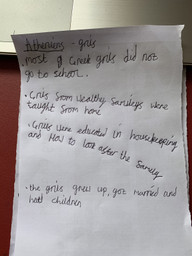 Athenians - grils
. most of Greek grils did not
go to school.
. Grils from wealthy familys were
taught from home
. Grils were educated in housekeeping
and how to look after the family
. the grils grew up, got married and
had children